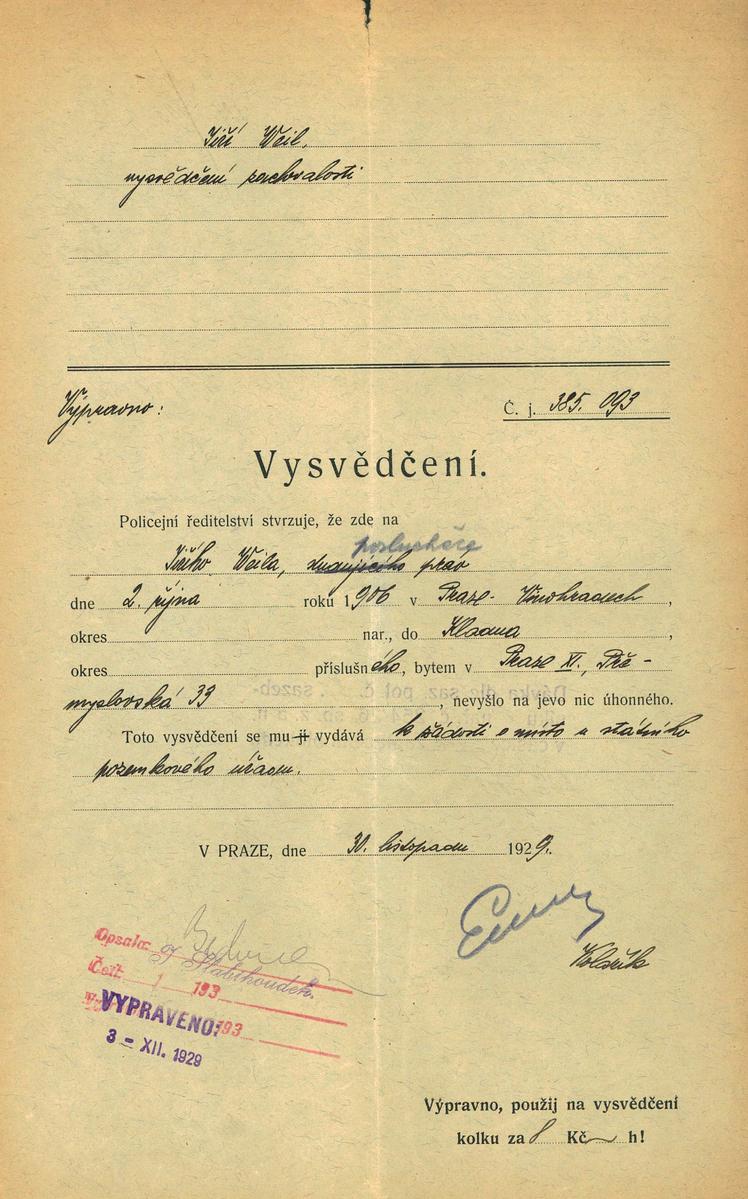 Jiří Weil,
vysvědčení zachovalosti
Výpravno:
Č. j. 385.093
Vysvědčení.
Policejní ředitelství stvrzuje, že zde na
posluchače
Jiřího Weila, studujícího práv
dne 2. října roku 1906 v Praze-Vinohradech,
okres nar., do Kladna,
okres příslušného, bytem v Praze XI., Pře-
myslovská 33, nevyšlo na jevo nic úhonného.
Toto vysvědčení se mu-ji vydává k žádosti o místo u státního
pozemkového úřadu.
V PRAZE, dne 30. listopadu 1929.
Kolařík
Opsala:
Čett. 1 193
193
VYPRAVENO:
3 - XII. 1929
Výpravno, použij na vysvědčení
kolku za 8 Kč h!